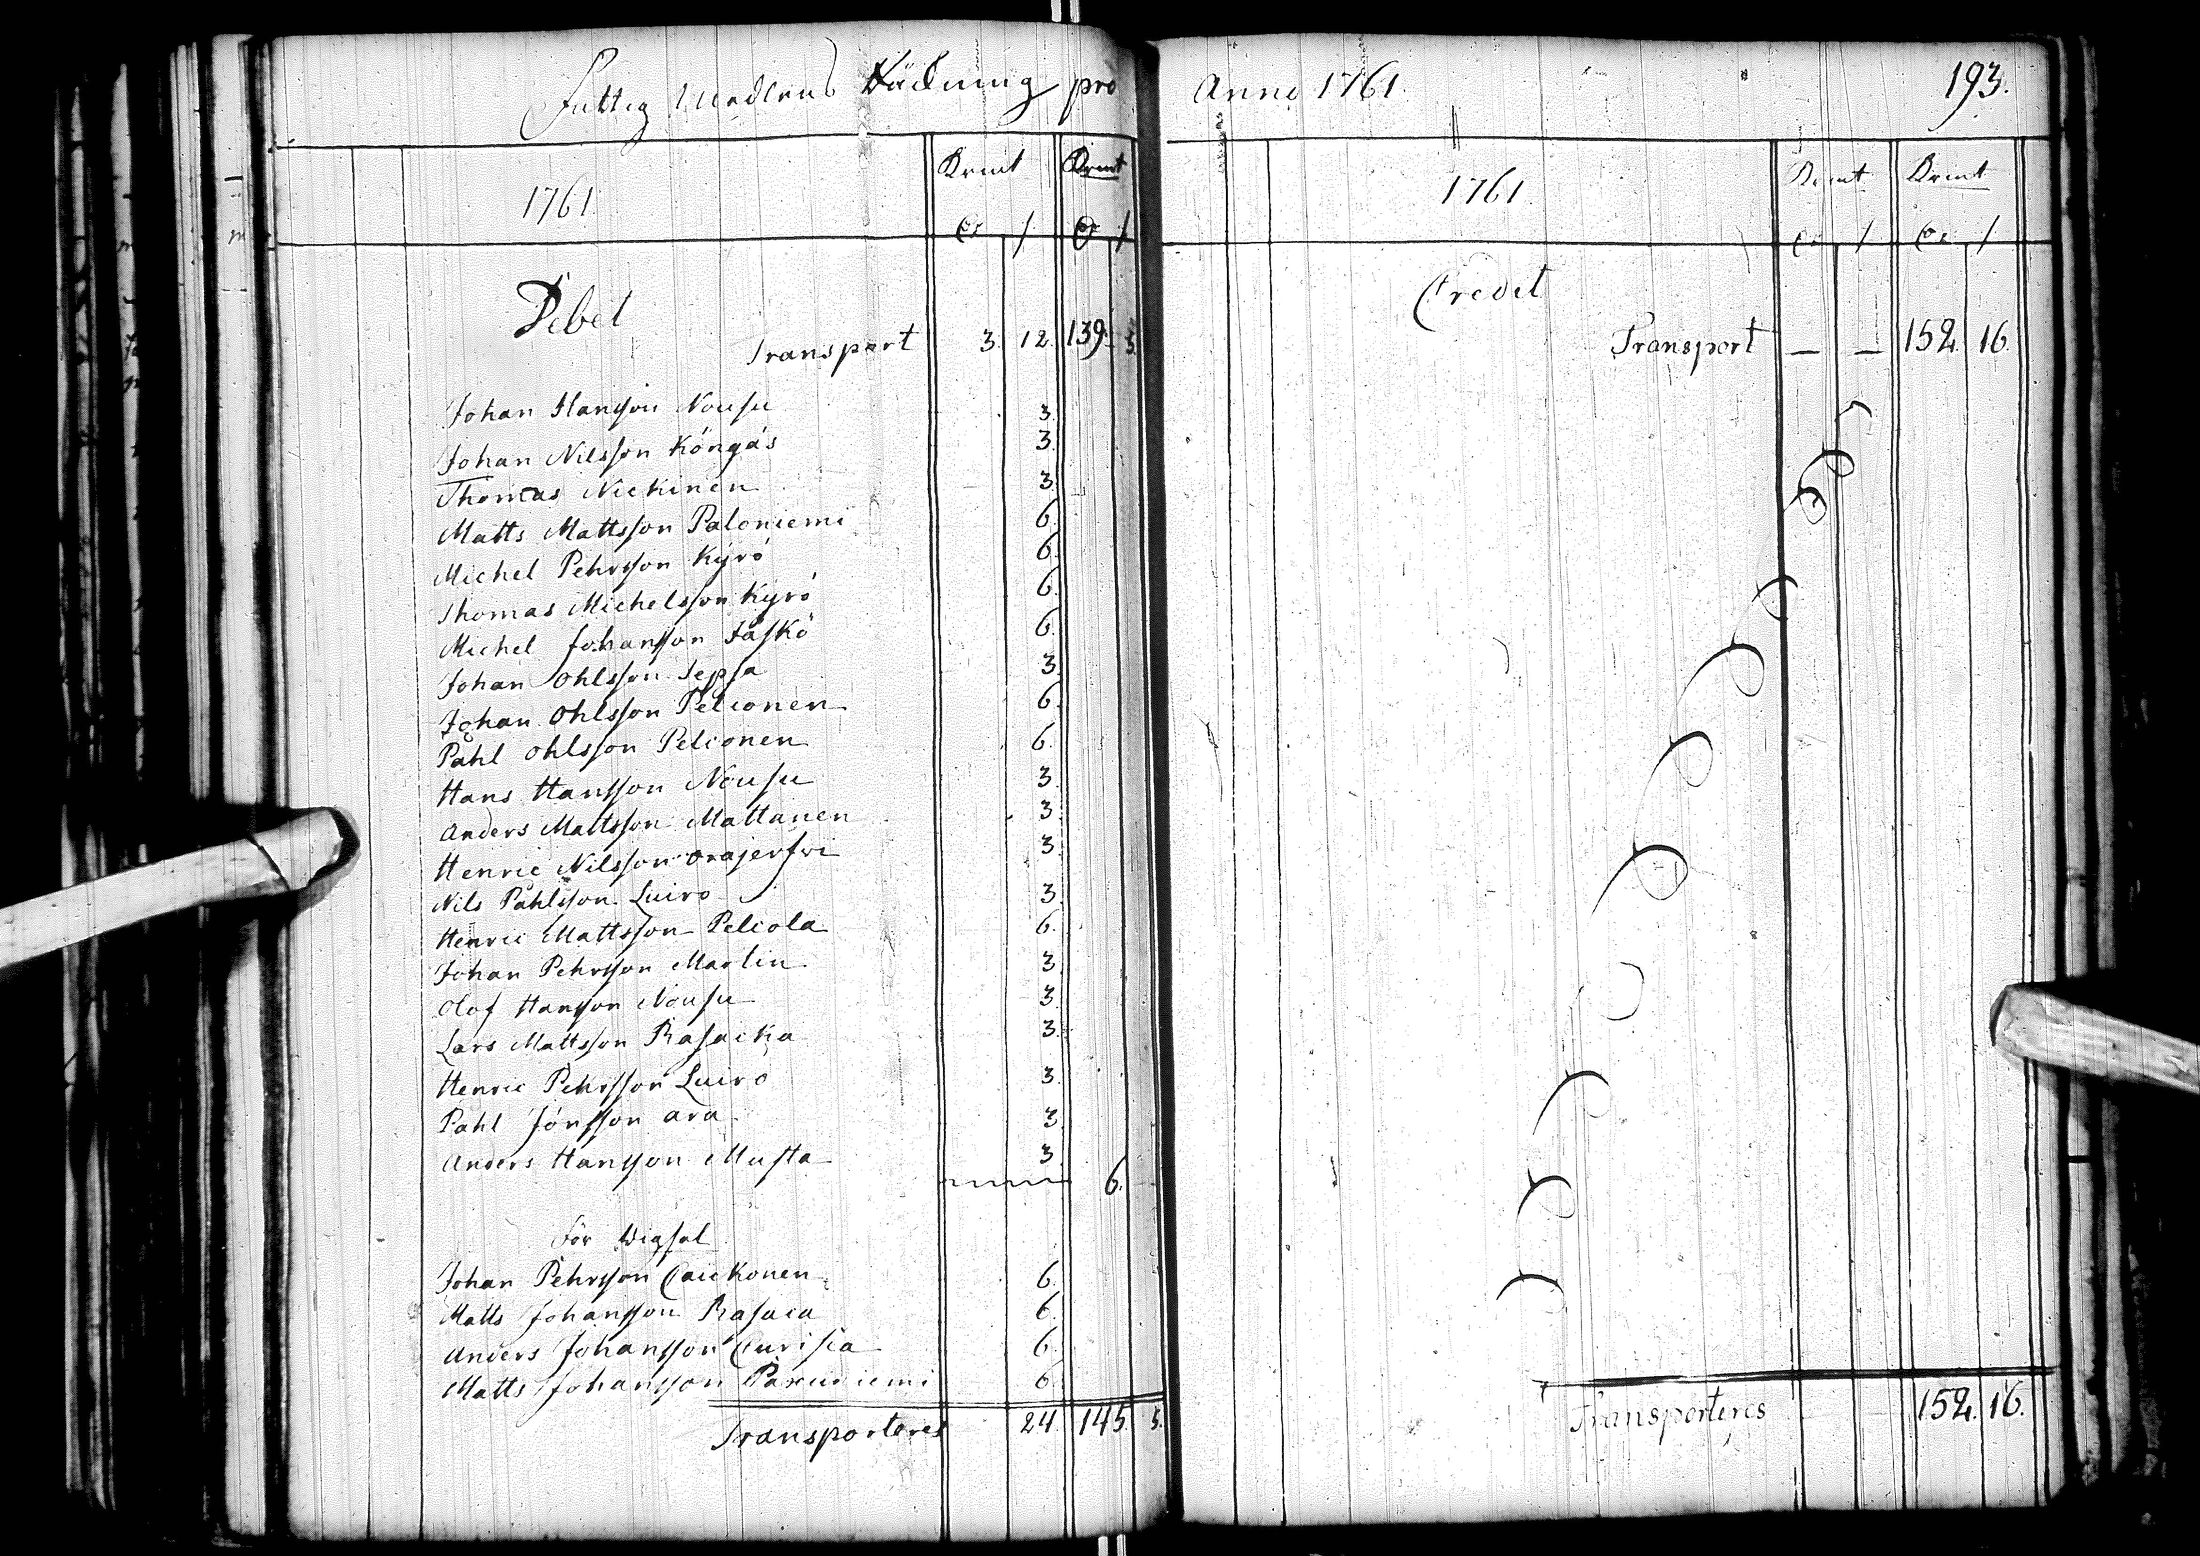 Fattig Medlens Räckning pro
1761
Krmt Krmt
Or / Or /
Debet
Transport 3. 12. 139. 5.
Johan Hansson Nousu 3.
Johan Nilsson Köngäs 3.
Thomas Nickinen 3.
Matts Mattsson Paloniemi 6.
Michel Pehrsson Kyrö 6.
Thomas Michelsson Kyrö 6.
Michel Johansson Jäskö 6.
Johan Ohlsson Sepsa 3.
Johan Ohlsson Pelconen 6.
Påhl Ohlsson Pelconen 6.
Hans Hansson Nousu 3.
Anders Mattsson Mattanen 3.
Henric Nilsson Orajerfvi 3.
Nils Påhlsson Luiro 3.
Henric Mattsson Pelcola 6.
Johan Pehrsson Martin 3.
Olof Hansson Nousu 3.
Lars Mattsson Rasacka 3.
Henric Pehrsson Luiro 3.
Pahl Jönsson ara 3.
Anders Hansson Musta 3.
6.
För Wigsel
Johan Pehrsson Caickonen 6.
Matts Johansson Rasaca 6.
Anders Johansson 6.
Matts Johansson 6.
Transporteres 24. 145. 5.
Anno 1761. 193.
1761.
Krmt Krmt
Or / Or /
Credit
Transport — — 152. 16.
Transporteres 152. 16.